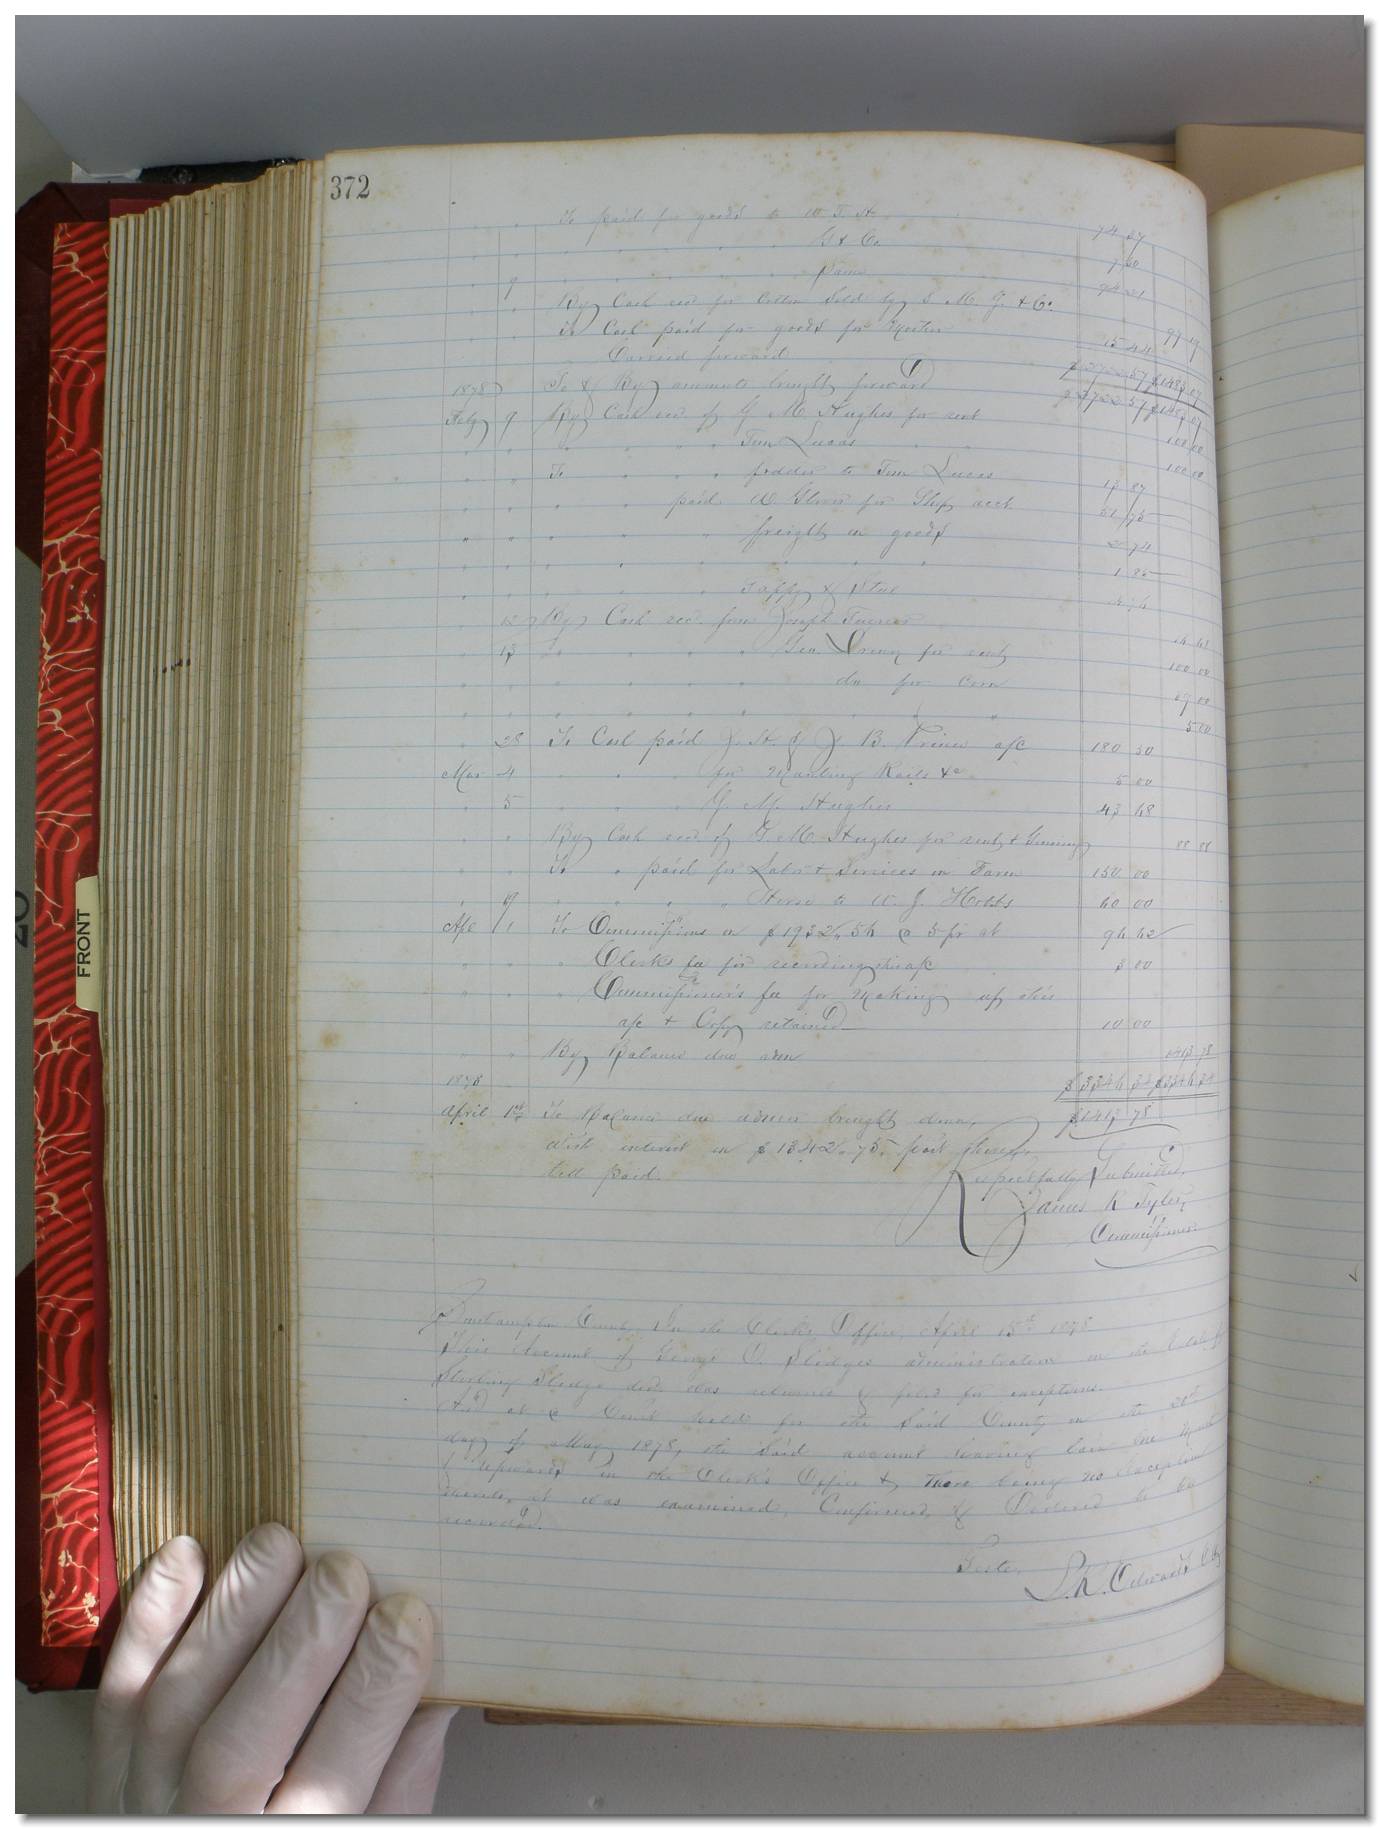 372
To paid for goods to W. T. H. 74 27
" " " " " " & Co. 7 20
" 9 " " " " " Same 94 21
" " By Cash recd for Cotton Sold by S. M. J. & Co. 99 19
" " To Cash paid for goods for 15 44
Carried forward $2722 57 $1483 07
1878 To & By amounts brought forward $2722 57 $1483 07
Feby 9 By Cash recd of G M Hughes for rent 100 00
" " " " " " Tom Lucas " " 100 00
" " To " " " fodder to Tom Lucas 13 87
" " " " paid W Glover for Shop acct 51 75
" " " " " freight on goods 2 74
" " " " " " " " 1 25
" " " " &
" 12 By Cash recd from Joseph Turner
" 13 " " " " " Geo for rent 100 00
" " " " " " " do for corn
" " " " " " " " 5 00
" 28 To Cash paid J. H. & J. B. Prince a/c 180 30
Mar 4 " " " for Mauling Rails &c 5 00
" 5 " " " G. M. Hughes 43 68
" " By Cash recd of G M. Hughes for rent & Ginning 88 88
" " To " paid for Labor & Services on Farm 150 00
" 9 " " " " Horse to W. J. Hobbs 60 00
Apl 1 To Commissions on $1932.56 @ 5 pr ct 96 62
" " " Clerks fee for recording this a/c 3 00
" " " Commissioner's fee for Making up this
a/c & Copy retained 10 00
" " By Balance due adm 1413 78
1878 $3346 34 $3346 34
April 1st To Balance due admr brought down, $1413 78
with interest on $1342.75, part thereof,
till paid.
Respectfully Submitted,
James R Tyler,
Commissioner.
Southampton County, In the Clerks Office, April 15th 1878
This Account of George O. Sledges administration on the Estate of
Sterling Sledge decd was returned & filed for exceptions.
And at a Court held for the Said County on the 20th
day of May 1878, the Said account having lain one Month
& upwards in the Clerk's Office & There being no Exceptions
thereto, it was examined, Confirmed, & Ordered to be
recorded.
Teste,
L. R. Edwards Clk